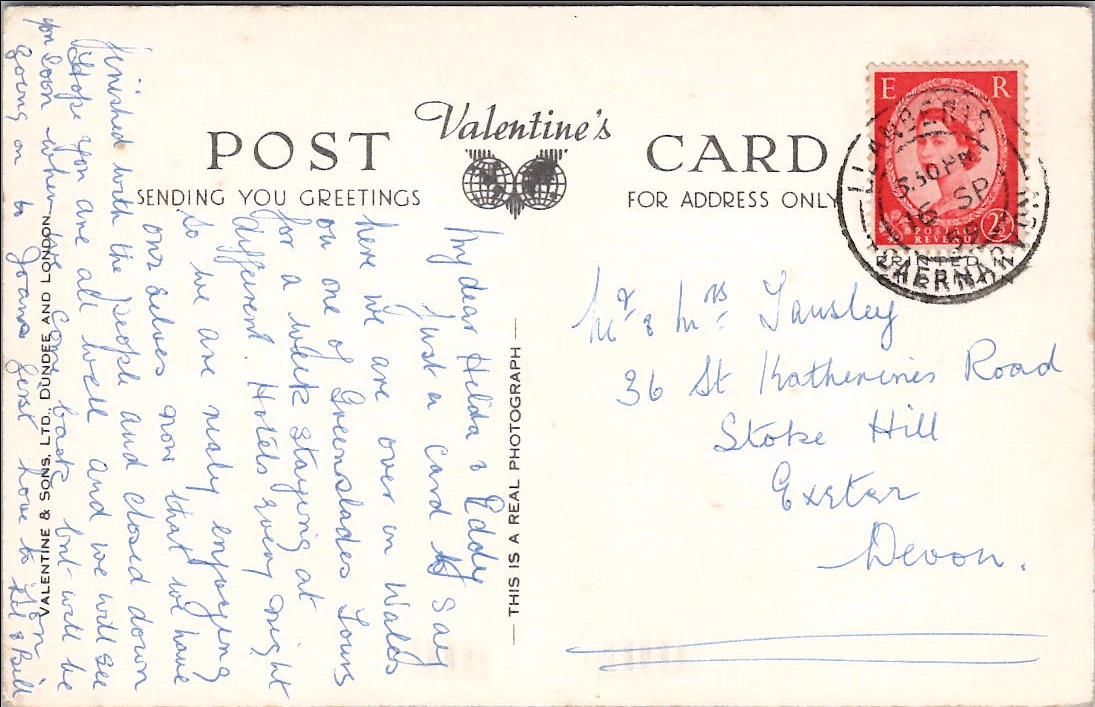 Valentine's
POST CARD
SENDING YOU GREETINGS
FOR ADDRESS ONLY
E R
POSTAGE
REVENUE
LLANBERIS
5.30 PM
16 SP
CAERNARVON
PRINTED IN
My dear Hilda & Eddy
Just a card to say
here we are over in Wales
on one of Greenslades Tours
for a week staying at
different Hotels every night
so we are realy enjoying
our selves now that we have
finished with the people and closed down
Hope you are all well and we will see
you soon when we come back but will be
going on to Joans first love to
Lil & Bill
VALENTINE & SONS, LTD., DUNDEE AND LONDON
THIS IS A REAL PHOTOGRAPH
Mr & Mrs Tansley
36 St Katherines Road
Stoke Hill
Exeter
Devon.